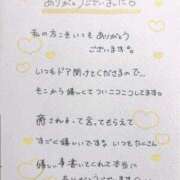 ありがとうございました
私の方こそいつもありがとう
ございます。
いつもドア開けてくださるので、
そこから嬉しくてついニコニコしてます。
癒されるって言ってもらえて
すごく嬉しいですな。いつもたくさん
嬉しい事書いてくれて本当に
ありがとうございます